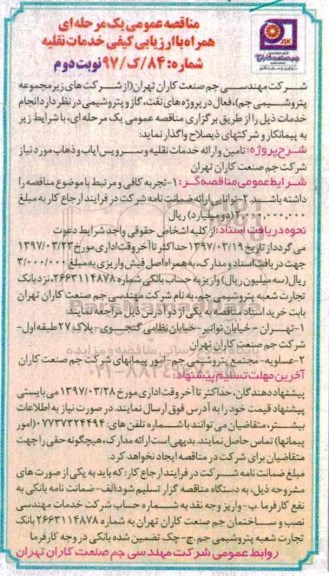 مناقصه عمومی یک مرحله ای
همراه با ارزیابی کیفی خدمات نقلیه
شماره: ۸۴/ک/۹۷ نوبت دوم
شرکت مهندسی جم صنعت کاران تهران (از شرکت های زیرمجموعه
پتروشیمی جم)، فعال در پروژه های نفت، گاز و پتروشیمی در نظر دارد انجام
خدمات ذیل را از طریق برگزاری مناقصه عمومی یک مرحله ای، با شرایط زیر
به پیمانکار و شرکتهای ذیصلاح واگذار نماید:
شرح پروژه: تامین و ارائه خدمات نقلیه و سرویس ایاب و ذهاب مورد نیاز
شرکت جم صنعت کاران تهران
شرایط عمومی مناقصه گر: ۱-تجربه کافی و مرتبط با موضوع مناقصه را
داشته باشید. ۲-توانایی ارائه ضمانت نامه شرکت در فرایند ارجاع کار به مبلغ
(دو میلیارد) ریال
نحوه دریافت اسناد: از کلیه اشخاص حقوقی واجد شرایط دعوت
می گردد از تاریخ ۱۳۹۷/۰۳/۱۹ حداکثر تا آخر وقت اداری مورخ ۱۳۹۷/۰۳/۲۳
جهت دریافت اسناد و مدارک، به همراه اصل فیش واریزی به مبلغ ۳/۰۰۰/۰۰۰
ریال (سه میلیون ریال) واریز به حساب بانکی شماره ۲۶۶۳۱۱۴۸۷۸، نزد بانک
تجارت شعبه پتروشیمی جم، به نام شرکت مهندسی جم صنعت کاران تهران
بابت خرید اسناد مناقصه به یکی از دو آدرس ذیل مراجعه نمایند:
۱-تهران - خیابان نوآتیر - خیابان نظامی گنجوی - پلاک ۲۷ طبقه اول -
شرکت جم صنعت کاران تهران
۲-عسلویه- مجتمع پتروشیمی جم- امور پیمانهای شرکت جم صنعت کاران
آخرین مهلت تسلیم پیشنهاد:
پیشنهاددهندگان، حداکثر تا آخر وقت اداری مورخ ۱۳۹۷/۰۳/۲۸ می بایستی
پیشنهاد قیمت خود را به آدرس فوق ارسال نمایند. در صورت نیاز به اطلاعات
بیشتر، متقاضیان می توانند با شماره تلفن های: ۰۷۷۳۷۳۲۴۴۹۴ (امور
پیمانها) تماس حاصل نمایند. بدیهی است ارائه مدارک، هیچگونه حقی را جهت
متقاضیان برای شرکت در مناقصه ایجاد نخواهد کرد.
مبلغ ضمانت نامه شرکت در فرایند ارجاع کار: که باید به یکی از صورت های
مشروحه ذیل، به دستگاه مناقصه گزار تسلیم شود: الف- ضمانت نامه بانکی به
نفع کارفرما. ب- واریز وجه نقد به شماره حساب شرکت خدمات مهندسی
نصب و ساختمان جم صنعت کاران تهران به شماره ۲۶۶۳۱۱۴۸۷۸ بانک
تجارت شعبه پتروشیمی جم. ج- چک تضمین شده بانکی در وجه کارفرما
روابط عمومی شرکت مهندسی جم صنعت کاران تهران